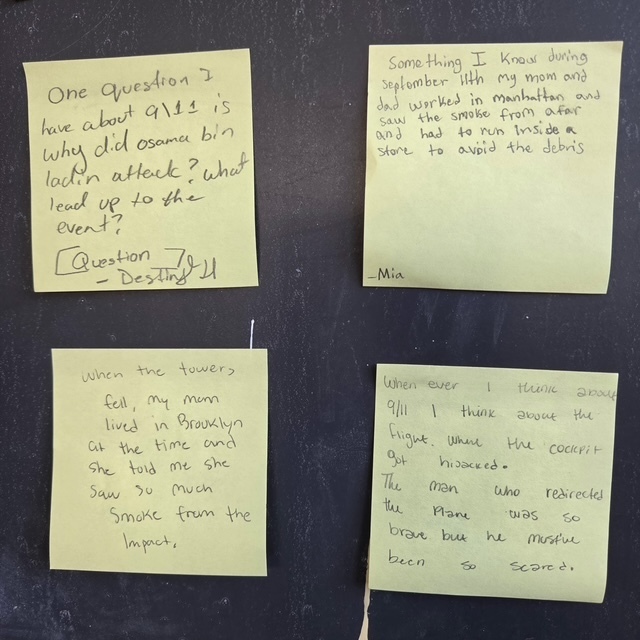 One question I
have about 9\11 is
why did osama bin
ladin attack? what
lead up to the
event?
[Question]
- Destiny
Something I know during
september 11th my mom and
dad worked in manhattan and
saw the smoke from afar
and had to run inside a
store to avoid the debris
-Mia
when the towers
fell, my mom
lived in Brouklyn
at the time and
she told me she
saw so much
smoke from the
Impact.
When ever I think about
9/11 I think about the
flight. Where the cockpit
got hijacked.
The man who redirected
the plane was so
brave but he must've
been so scared.